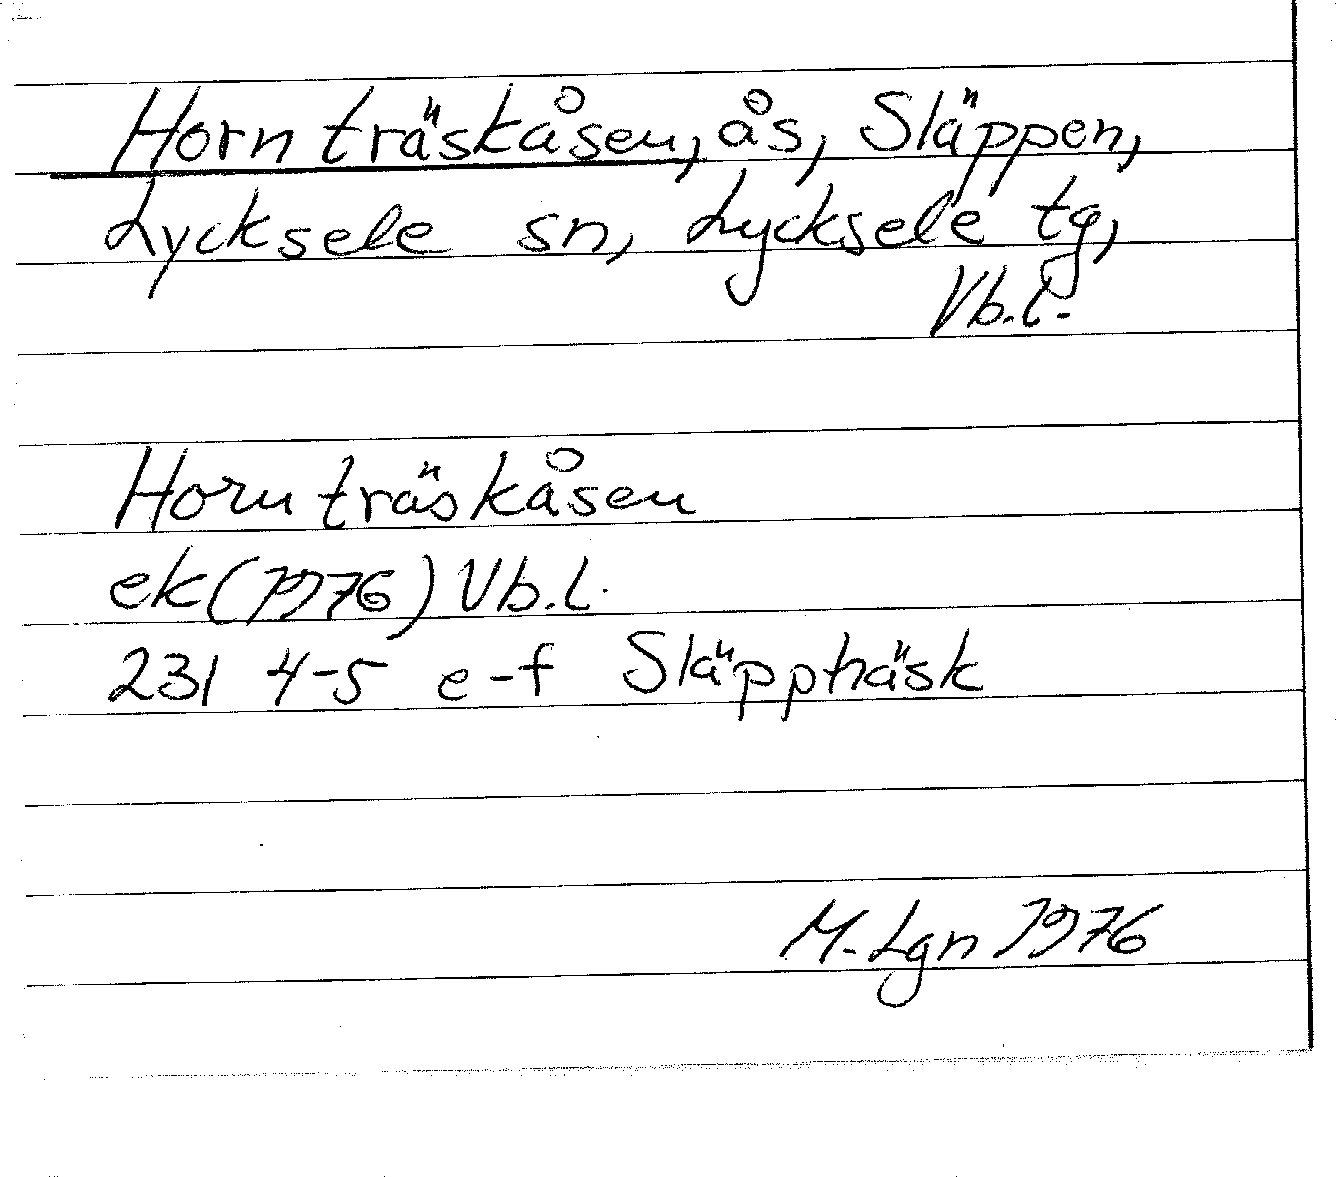 Hornträskåsen, ås, Släppen,
Lycksele sn, Lycksele tg,
Vb.l.
Hornträskåsen
ek(1976) Vb.l.
231 4-5 e-f Släppträsk
M-Lgn 1976